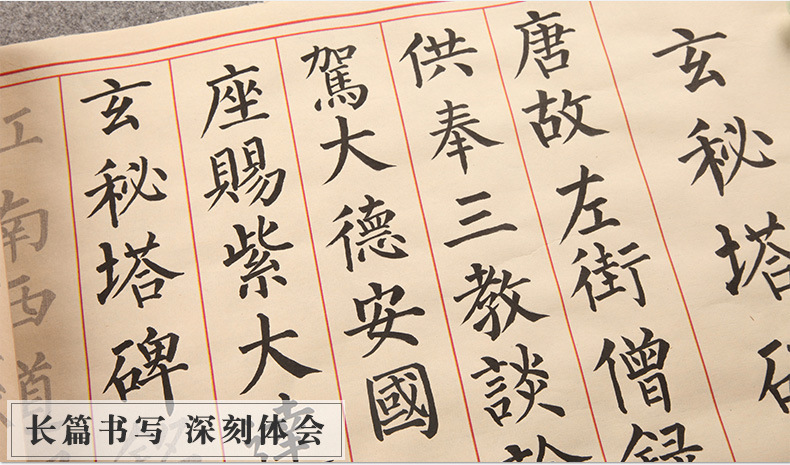 玄秘塔碑
唐故左街僧録
供奉三教談論
駕大德安國
座賜紫大達
玄秘塔碑
江南西道
长篇书写 深刻体会